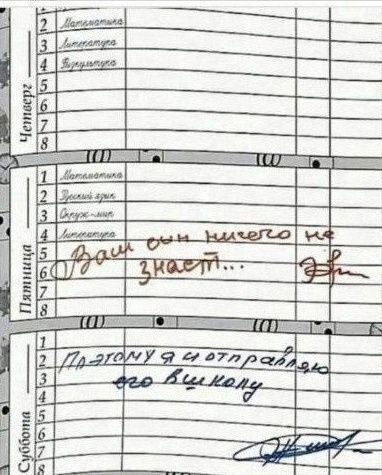 Четверг
1
2 Математика
3 Литература
4 Физкультура
5
6
7
8
Пятница
1 Математика
2 Русский язык
3 Окруж-мир
4 Литература
5
6
7
8
Ваш сын ничего не
знает...
Суббота
1
2
3
4
5
6
7
8
Поэтому я и отправляю
его в школу